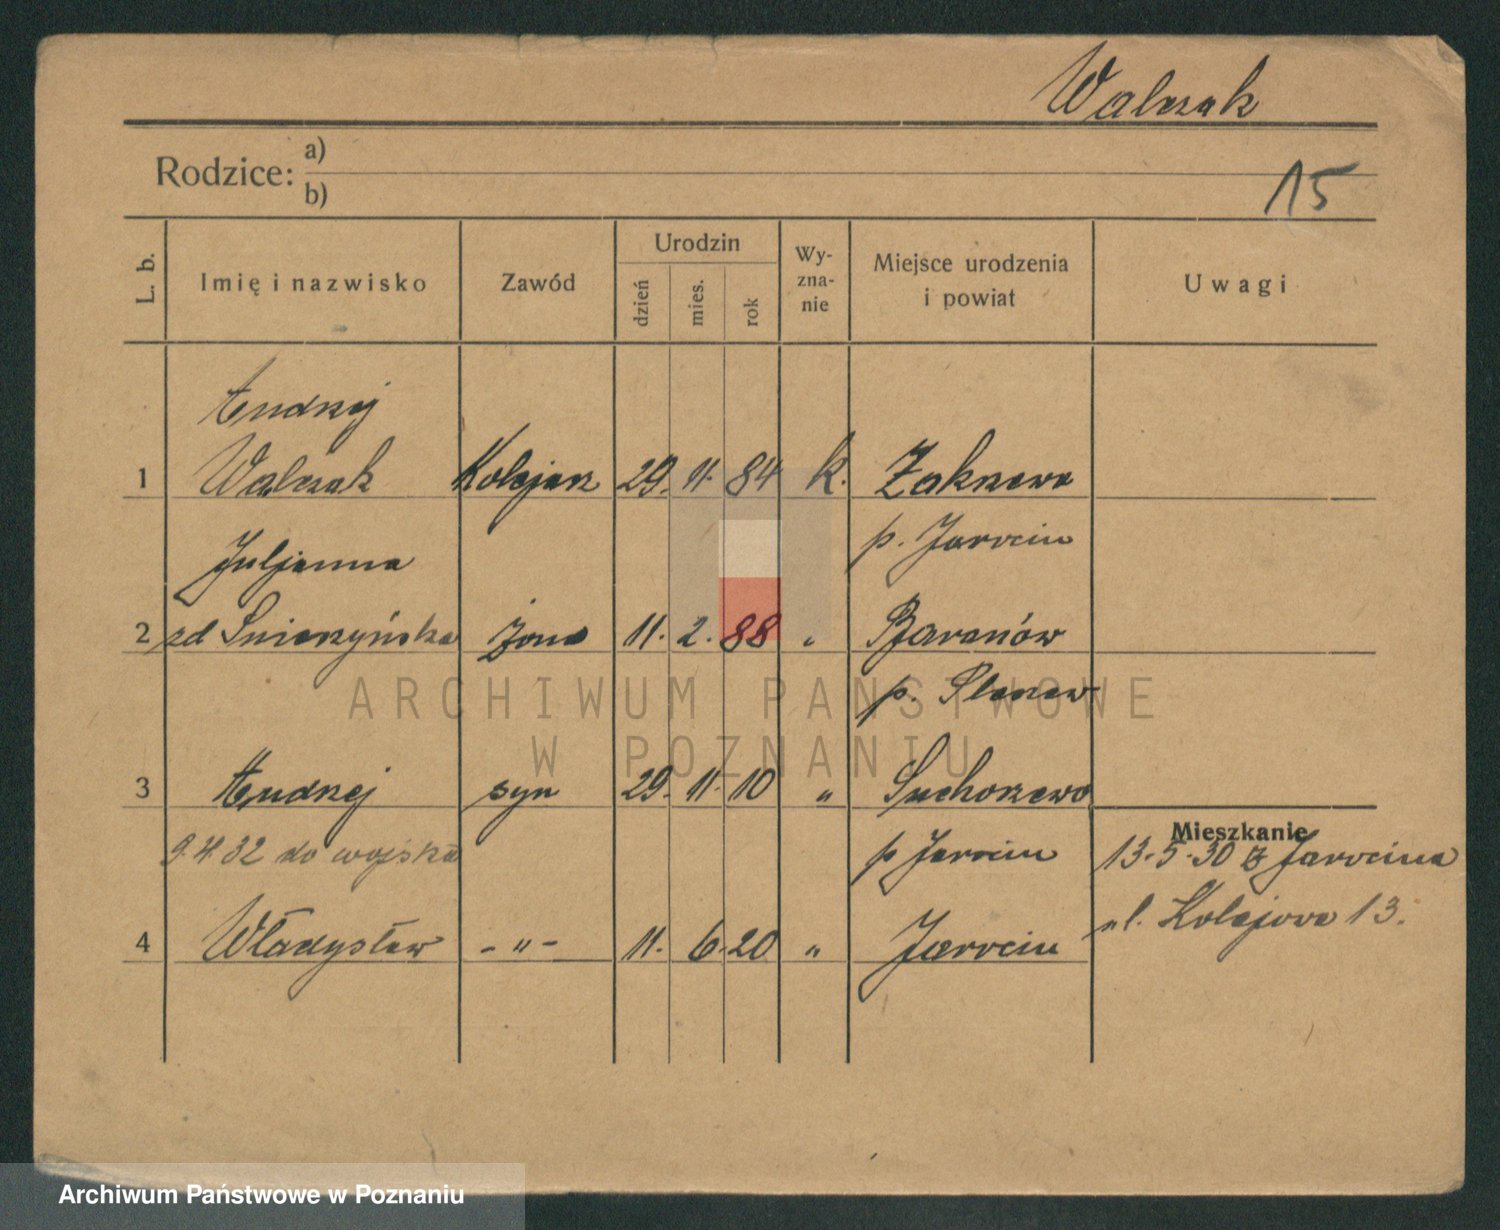 Walczak
Rodzice: a)
b)
15
L. b. Imię i nazwisko Zawód Urodzin dzień mies. rok Wy-zna-nie Miejsce urodzenia i powiat Uwagi
Andrzej
1 Walczak Kolejarz 29. 11. 84 k. Zakrzewo
Juljanna p. Jarocin
2 zd Śnieżyńska żona 11. 2. 88 " Baranów
p. Pleszew
3 Andrzej syn 29. 11. 10 " Suchorzewo
Mieszkanie
9.4.32 do wojska p Jarocin 13-5-30 z Jarocina
ul. Kolejowa 13.
4 Władysław - " - 11. 6. 20 " Jarocin
ARCHIWUM PAŃSTWOWE
W POZNANIU
Archiwum Państwowe w Poznaniu